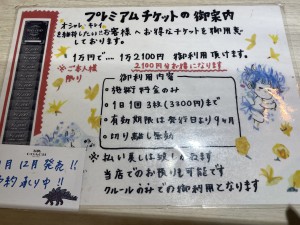 プレミアムチケットの御案内
オシャレ、キレイ
を維持したいお客様へお得なチケットを御用意
しております。
1万円で… 1万2100円 御利用頂けます。
※ご本人様
限り
2100円分お得になります
御利用内容
○施術料金のみ
○1日1回3枚(3300円)まで
○有効期限は発行日より9ヶ月
○切り離し無効
※払い戻しは致しかねます
当店でのお取りも可能です
クルールのみでの御利用となります
月12月発売!!
予約承り中!!